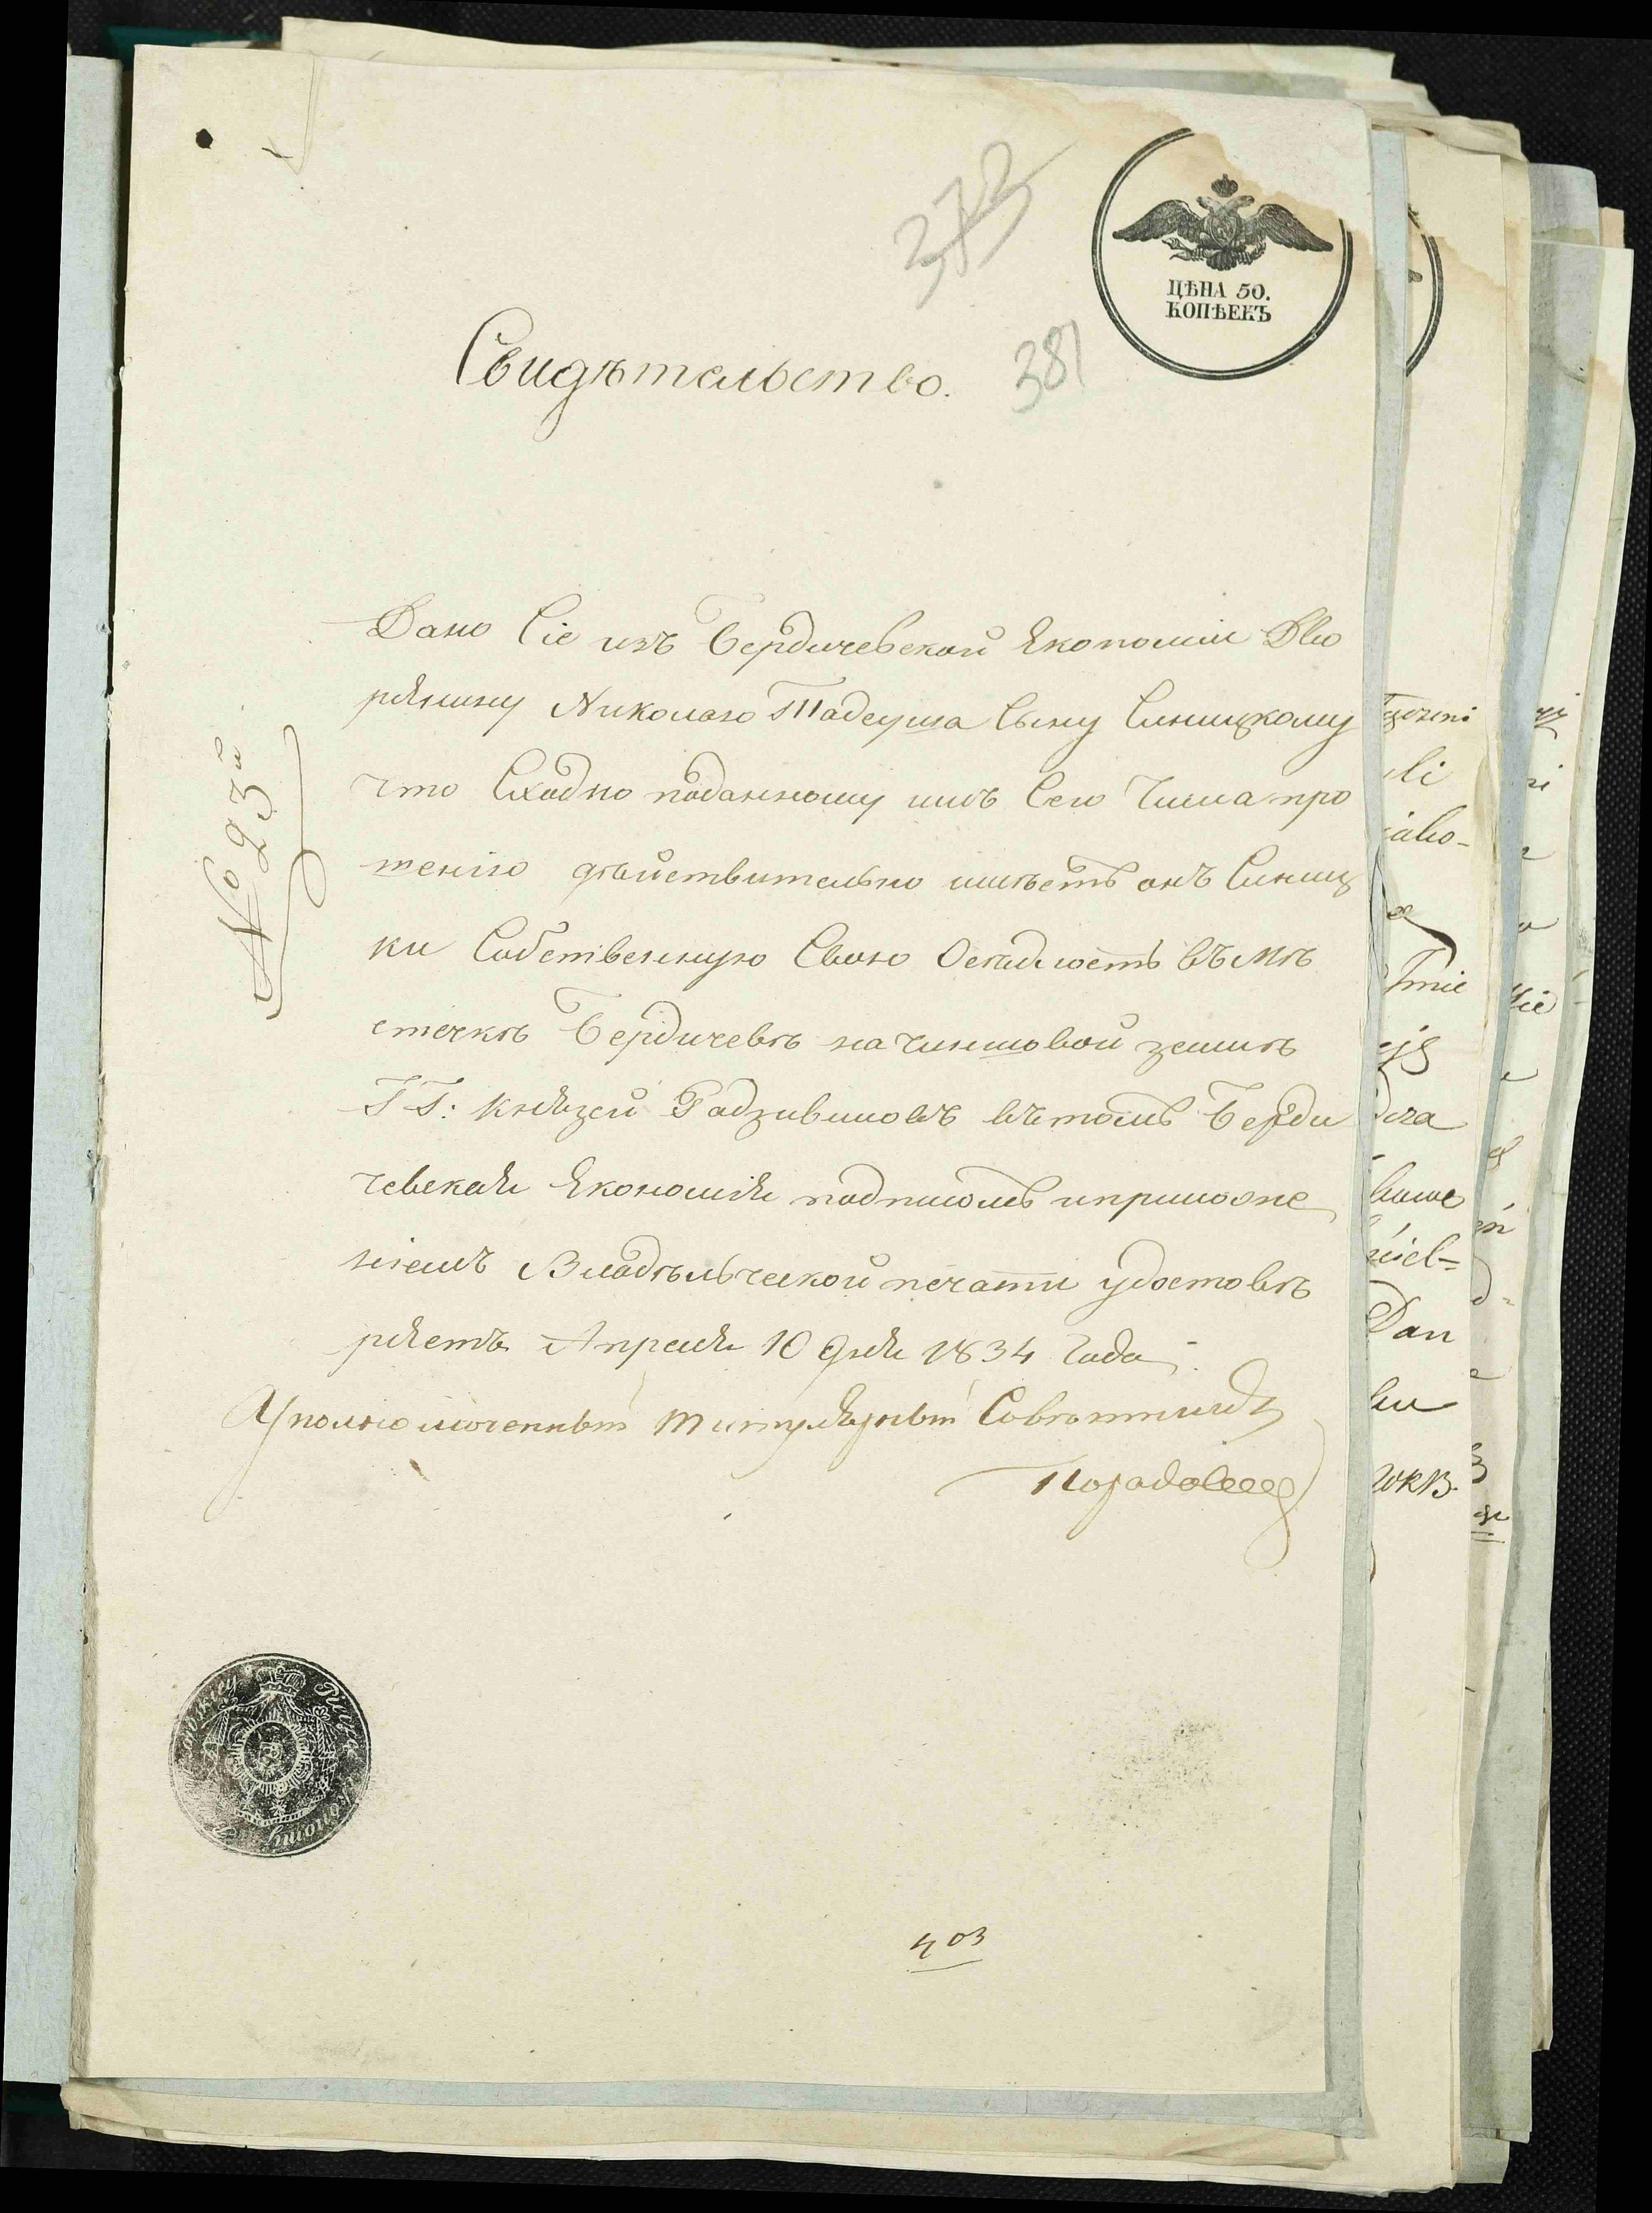 373
ЦѢНА 50.
КОПѢЕКЪ
381
Свидѣтельство.
Дано Сіе изъ Бердичевской Економіи Дво
рянину Николаю Тадеуша Сыну Синицкому
что Сходно поданному имъ Сего Числа про
шенію дѣйствительно имѣетъ онъ Синиц
ки Собственную Свою Осѣдлость въ мѣ
стечкѣ Бердичевѣ на чиншовой землѣ
ГГ: Князей Радзивиловъ въ томъ Берди
чевская Економія подписомъ и приложе
ніемъ Владѣльческой печати удостовѣ
ряетъ Апреля 10 дня 1834 Года
Уполномоченный Титулярный Совѣтникъ
№ 23й
403